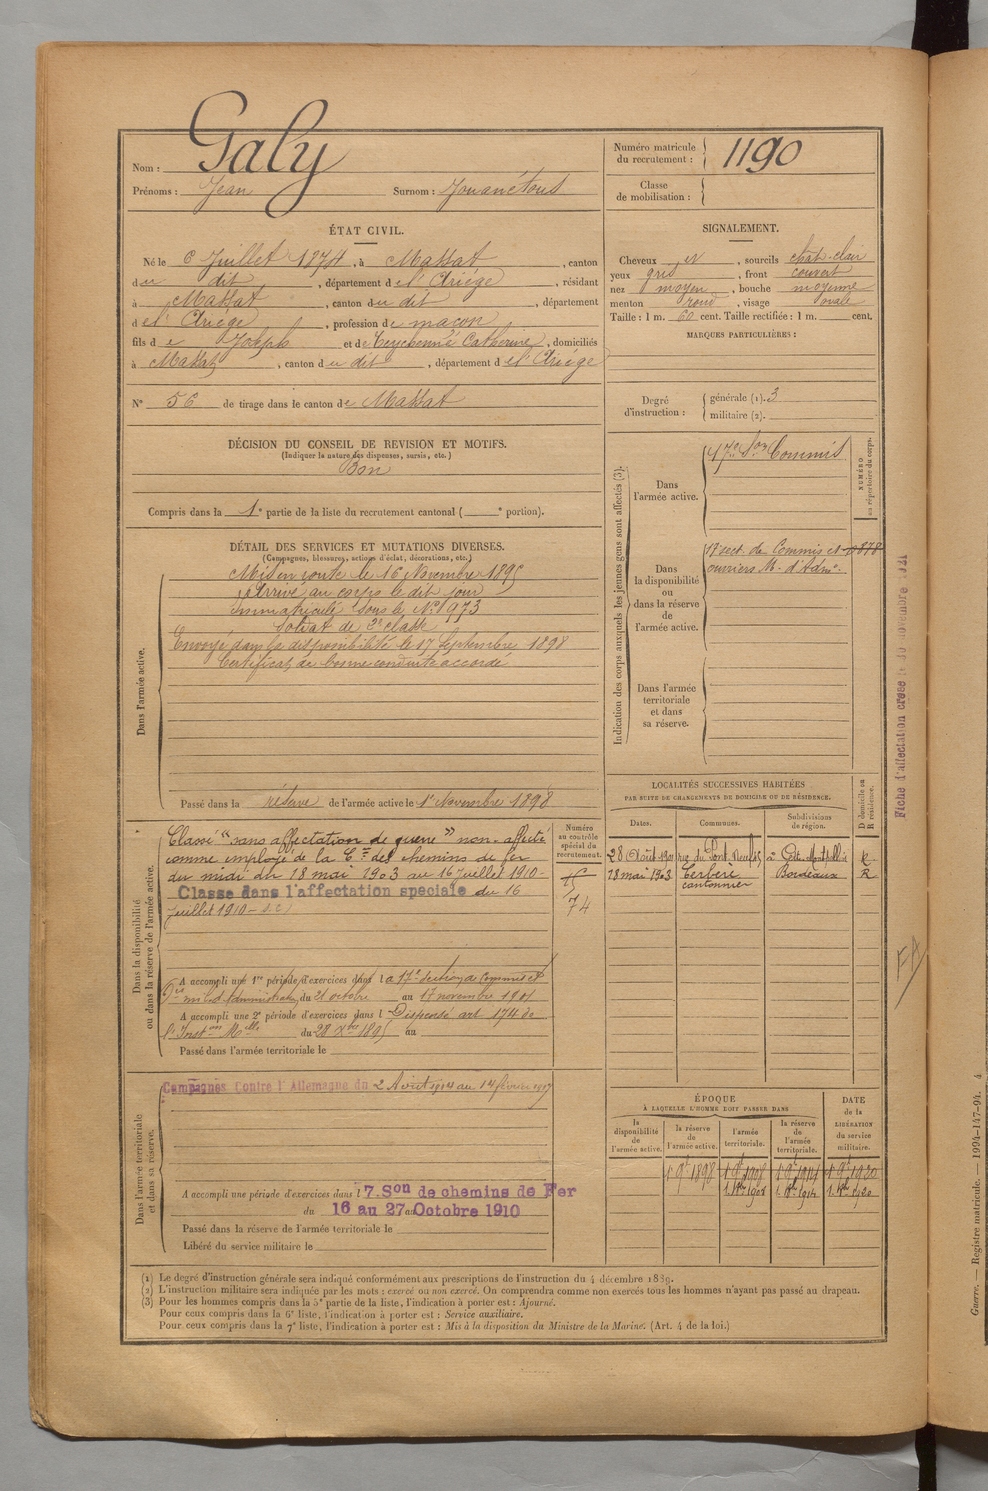 Nom : Galy
Prénoms : Jean Surnom : Jouanétous
Numéro matricule du recrutement : 1190
Classe de mobilisation :
ÉTAT CIVIL.
Né le 6 Juillet 1874, à Massat, canton
du dit, département de l'Ariège, résidant
à Massat, canton du dit, département
de l'Ariège, profession de maçon
fils de Joseph et de Teychenné Catherine, domiciliés
à Massat, canton du dit, département de l'Ariège
N° 56 de tirage dans le canton de Massat
SIGNALEMENT.
Cheveux et, sourcils chat. clair
yeux gris, front couvert
nez moyen, bouche moyenne
menton rond, visage ovale
Taille : 1 m. 60 cent. Taille rectifiée : 1 m. cent.
MARQUES PARTICULIÈRES :
Degré d'instruction : générale (1). 3
militaire (2).
DÉCISION DU CONSEIL DE REVISION ET MOTIFS.
(Indiquer la nature des dispenses, sursis, etc.)
Bon
Compris dans la 1e partie de la liste du recrutement cantonal ( e portion).
DÉTAIL DES SERVICES ET MUTATIONS DIVERSES.
(Campagnes, blessures, actions d'éclat, décorations, etc.)
Dans l'armée active.
Mis en route le 16 Novembre 1895
Arrivé au corps le dit jour
Immatriculé sous le N° 973
Soldat de 2e classe
Envoyé dans la disponibilité le 17 Septembre 1898
Certificat de bonne conduite accordé
Passé dans la réserve de l'armée active le 1er Novembre 1898
Indication des corps auxquels les jeunes gens sont affectés (3).
NUMÉRO au répertoire du corps.
Dans l'armée active.
17e Son Commis
Dans la disponibilité ou dans la réserve de l'armée active.
17e sect. de Commis et 878
ouvriers M. d'Adm.
Dans l'armée territoriale et dans sa réserve.
Dans la disponibilité ou dans la réserve de l'armée active.
Classé "sans affectation de guerre" non-affecté
comme employé de la Cie des chemins de fer
du midi du 18 mai 1903 au 16 Juillet 1910-
Classé dans l'affectation spéciale du 16
Juillet 1910 -
Numéro au contrôle spécial du recrutement.
74
A accompli une 1re période d'exercices dans la 17e Section de Commis et
du 21 octobre au 17 novembre 1901
A accompli une 2e période d'exercices dans l Dispensé art. 174 de
l'Inston Mlle du 28 Xbre 1895 au
Passé dans l'armée territoriale le
LOCALITÉS SUCCESSIVES HABITÉES
PAR SUITE DE CHANGEMENTS DE DOMICILE OU DE RÉSIDENCE.
Dates. Communes. Subdivisions de région. D domicile ou R résidence.
28 Août 1901 Montpellier R
18 mai 1903 Cerbère cantonnier Bordeaux R
Dans l'armée territoriale et dans sa réserve.
Campagnes Contre l'Allemagne du 2 Août 1914 au 14 février 1917
A accompli une période d'exercices dans l 7. Son de chemins de Fer
du 16 au 27 Octobre 1910
Passé dans la réserve de l'armée territoriale le
Libéré du service militaire le
ÉPOQUE
À LAQUELLE L'HOMME DOIT PASSER DANS
la disponibilité de l'armée active.
la réserve de l'armée active.
l'armée territoriale.
la réserve de l'armée territoriale.
DATE de la LIBÉRATION du service militaire.
1 9bre 1898 1 9bre 1908 1 9bre 1914 1 9bre 1920
Fiche d'affectation créée le 10 novembre 1921
FA
(1) Le degré d'instruction générale sera indiqué conformément aux prescriptions de l'instruction du 4 décembre 1889.
(2) L'instruction militaire sera indiquée par les mots : exercé ou non exercé. On comprendra comme non exercés tous les hommes n'ayant pas passé au drapeau.
(3) Pour les hommes compris dans la 5e partie de la liste, l'indication à porter est : Ajourné.
Pour ceux compris dans la 6e liste, l'indication à porter est : Service auxiliaire.
Pour ceux compris dans la 7e liste, l'indication à porter est : Mis à la disposition du Ministre de la Marine. (Art. 4 de la loi.)
Guerre. — Registre matricule. — 1994-147-94. 4